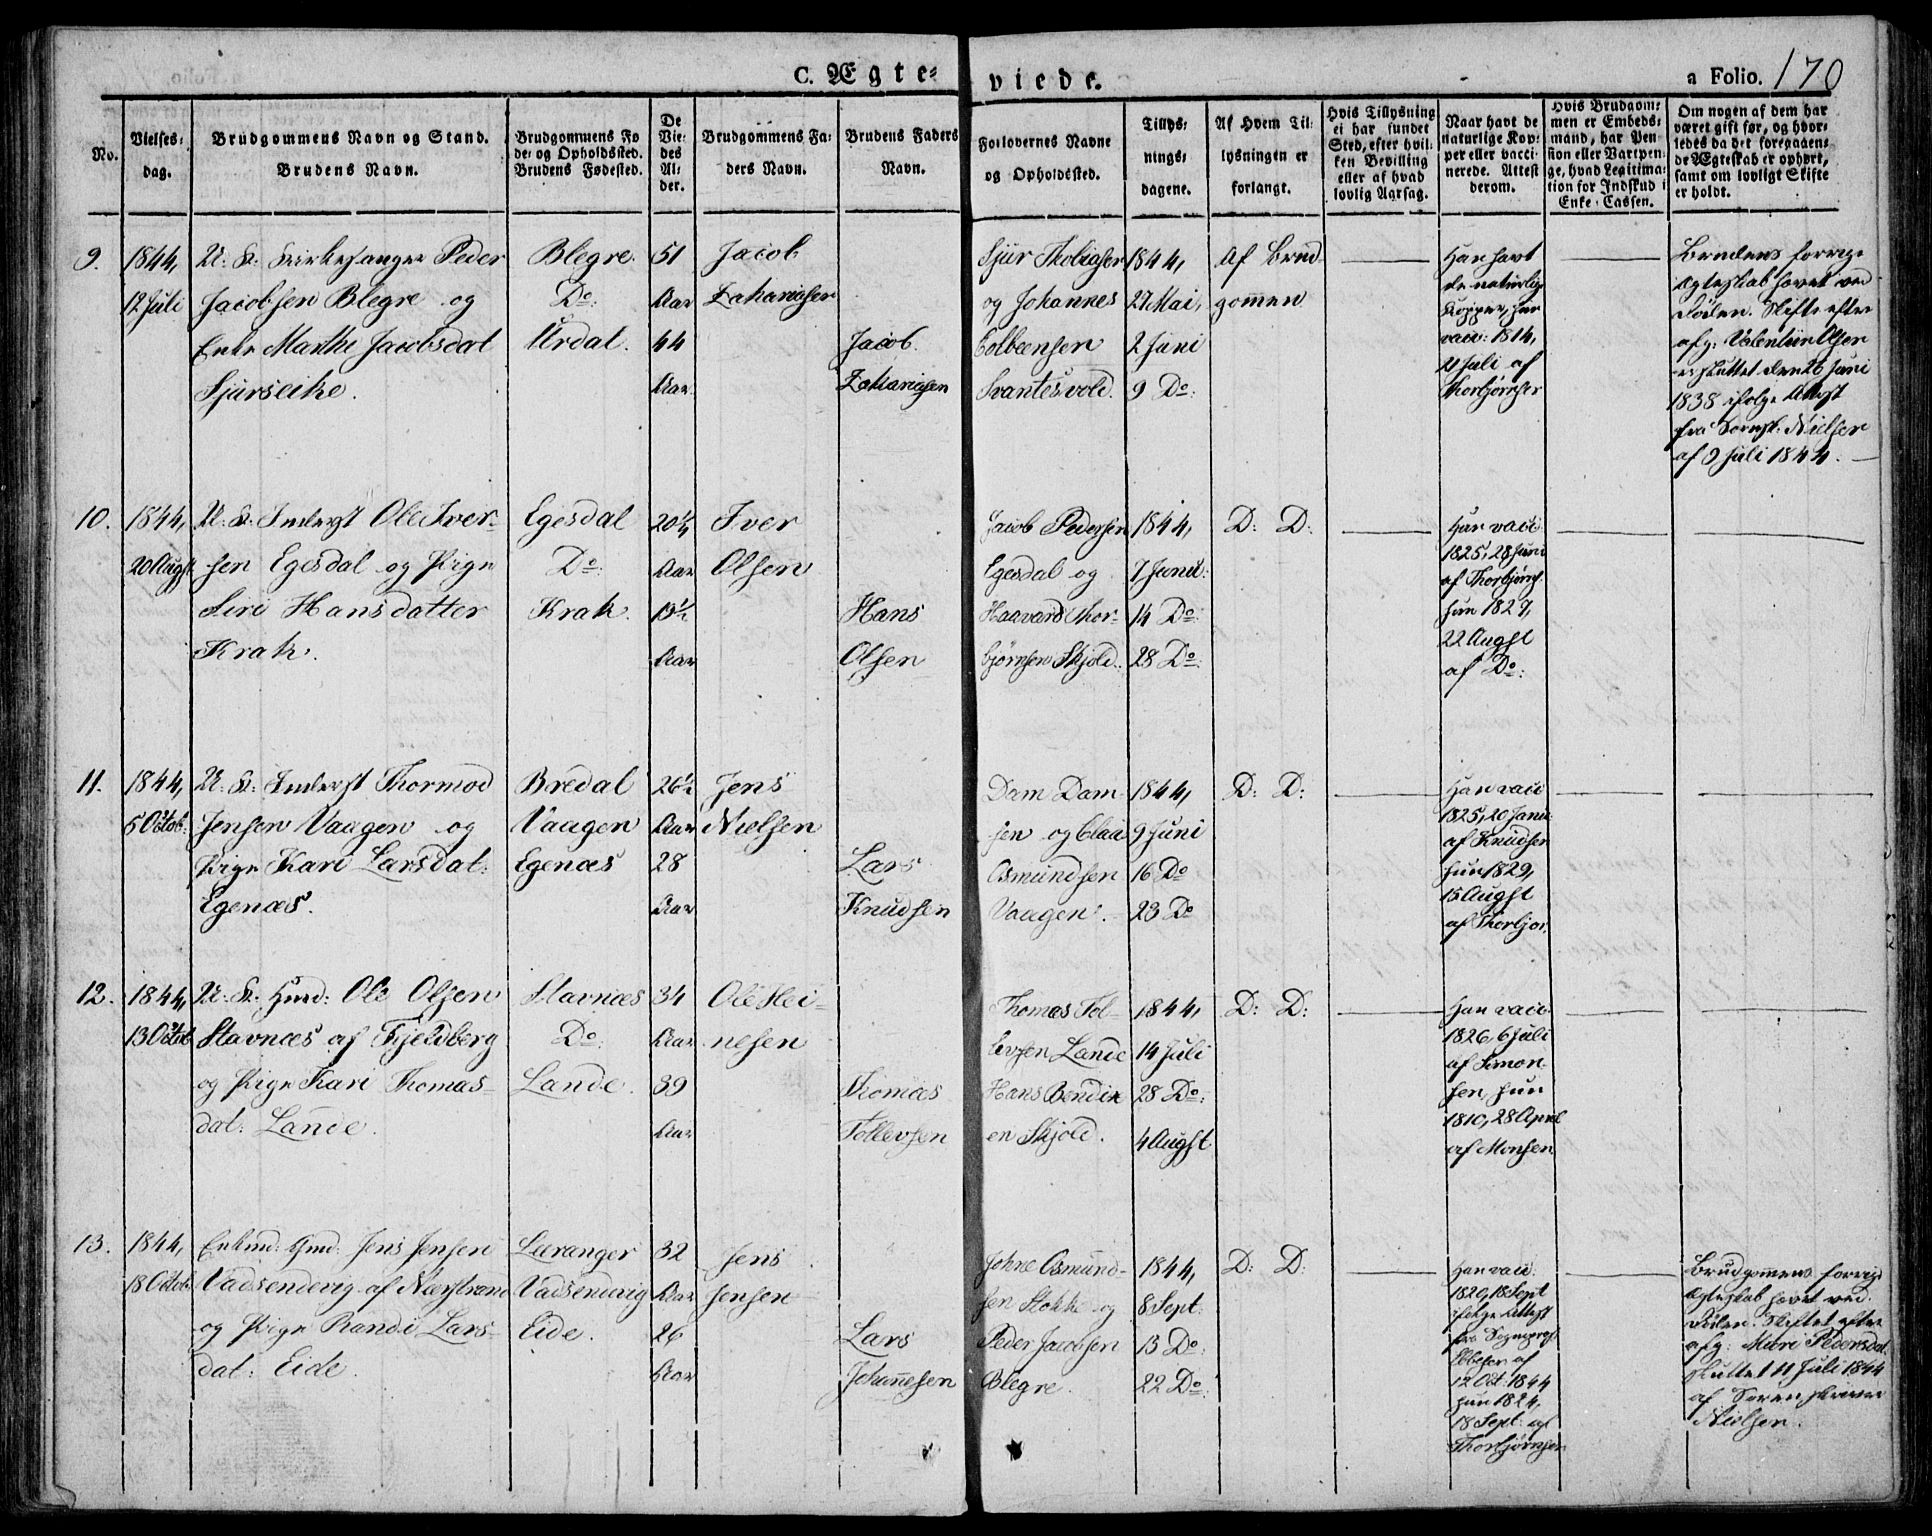 C. Ægte-
viede.
a Folio. 170
No.
Vielses-
dag.
Brudgommens Navn og Stand.
Brudens Navn.
Brudgommens Fø
de- og Opholdssted.
Brudens Fødested.
De
Vie-
des
Al-
der.
Brudgommens Fa-
ders Navn.
Brudens Faders
Navn.
Forlovernes Navne
og Opholdssted.
Tillys-
nings-
dagene.
Af Hvem Til-
lysningen er
forlangt.
Hvis Tillysning
ei har fundet
Sted, efter hvil-
ken Bevilling
eller af hvad
lovlig Aarsag.
Naar havt de
naturlige Kop-
per eller vacci-
nerede. Attest
derom.
Hvis Brudgom-
men er Embeds-
mand, har Pen-
sion eller Vartpen-
ge, hvad Legitima-
tion for Indskud i
Enke-Cassen.
Om nogen af dem har
været gift før, og hvor-
ledes da det foregaaen-
de Ægteskab er ophørt,
samt om lovligt Skifte
er holdt.
9.
1844,
12 Juli
U: K: Kirkesanger Peder
Jacobsen Blegre og
Enke Marthe Jacobsdat
Sjurseike.
Blegre.
Do:
Urdal.
51
Aar
44
Aar
Jacob
Zakariasen
Jacob
Zakariasen
Sjur Tholiasen
og Johannes
Colbeensen
Svantesvold.
1844,
27 Mai,
2 Juni
9 Do:
Af Brud-
gomen
Han havt
de naturlig
Kopper, hun
vacc: 1814,
21 Juli af
Thorbjørnsen
Brudens forrige
Ægteskab hævet ved
Døden. Skifte efter
afg: Valentin Olsen
er sluttet den 26 Juni
1838 ifølge Attest
fra Sornsk. Nielsen
af 9 Juli 1844.
10.
1844,
20 Augst
U: K: Inderst Ole Iver-
sen Egesdal og Pige
Siri Hansdatter
Krak.
Egesdal
Do:
Krak.
20 1/4
Aar
19 1/2
Aar
Iver
Olsen
Hans
Olsen
Jacob Pedersen
Egesdal og
Haavard Thor-
bjørnsen Skjold.
1844,
7 Junii:
14 Do:
28 Do:
D: D:
Han vacc
1825, 28 Juni
af Thorbjørns.
hun 1827,
22 Augst
af Do:
11.
1844,
5 Octob:
U: K: Inderst Thormod
Jensen Vaagen og
Pige Kari Larsdat:
Egenæs.
Bredal
Vaagen
Egenæs
26 1/2
Aar
28
Aar
Jens
Nielsen
Lars
Knudsen
Dam Dam-
sen og Claa
Osmundsen
Vaagen.
1844,
9 Juni
16 Do
23 Do
D: D:
Han vacc
1825, 20 Janu
af Knudsen
hun 1829,
15 Augst
af Thorbjør.
12.
1844,
13 Octob
U: K: Husd: Ole Olsen
Stavnæs af Fjeldberg
og Pige Kari Thomas-
dat: Lande.
Stavnæs
Do:
Lande.
34
Aar
39
Aar
Ole Hei-
nesen
Thomas
Tollevsen
Thomas Tol-
levsen Lande
Hans Bendix
en Skjold.
1844,
14 Juli
28 Do:
4 Augst
D: D:
Han vacc
1826, 6 Juli
af Simon-
sen, hun
1810, 28 April
af Monsen
13.
1844,
18 Octob
Enkmd: Gmd: Jens Jensen
Vadsendvig af Nærstrand
og Pige Randi Lars-
dat: Eide.
Leeranger
Vadsendvig
Eide.
32
Aar
26
Aar
Jens
Jensen
Lars
Johannesen
Johne Osmund-
sen Stokke og
Peder Jacobsen
Blegre.
1844,
8 Sept:
13 Do:
22 Do:
D: D:
Han vacc:
1820, 18 Sept
ifølge Attest
fra Sognepræst
af
12 Oct: 1844
hun 1824,
18 Sept: af
Thorbjørnsen
Brudgommens forrige
Ægteskab hævet ved
Døden. Skiftet efter
afg: Mari Pedersdat.
sluttet 11 Juli 1844
af Sorenskriver
Nielsen.